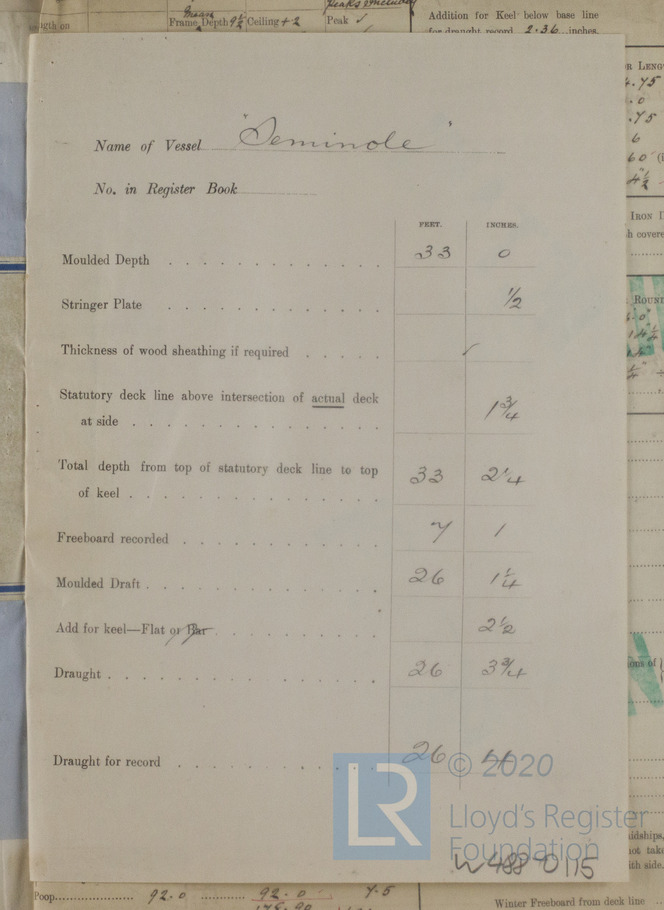 Mean
Frame Depth 9½ Ceiling +2
Peak ✓
Addition for Keel below base line
for draught record 2.36 inches.
Name of Vessel "Seminole"
No. in Register Book
FEET. INCHES.
Moulded Depth 33 0
Stringer Plate ½
Thickness of wood sheathing if required ✓
Statutory deck line above intersection of actual deck
at side 1¾
Total depth from top of statutory deck line to top
of keel 33 2¼
Freeboard recorded 7 1
Moulded Draft 26 1¼
Add for keel—Flat or Bar 2½
Draught 26 3¾
Draught for record 26 4
LR © 2020
Lloyd's Register
Foundation
W488-0115
Poop 92.0 92.0 7.5
Winter Freeboard from deck line